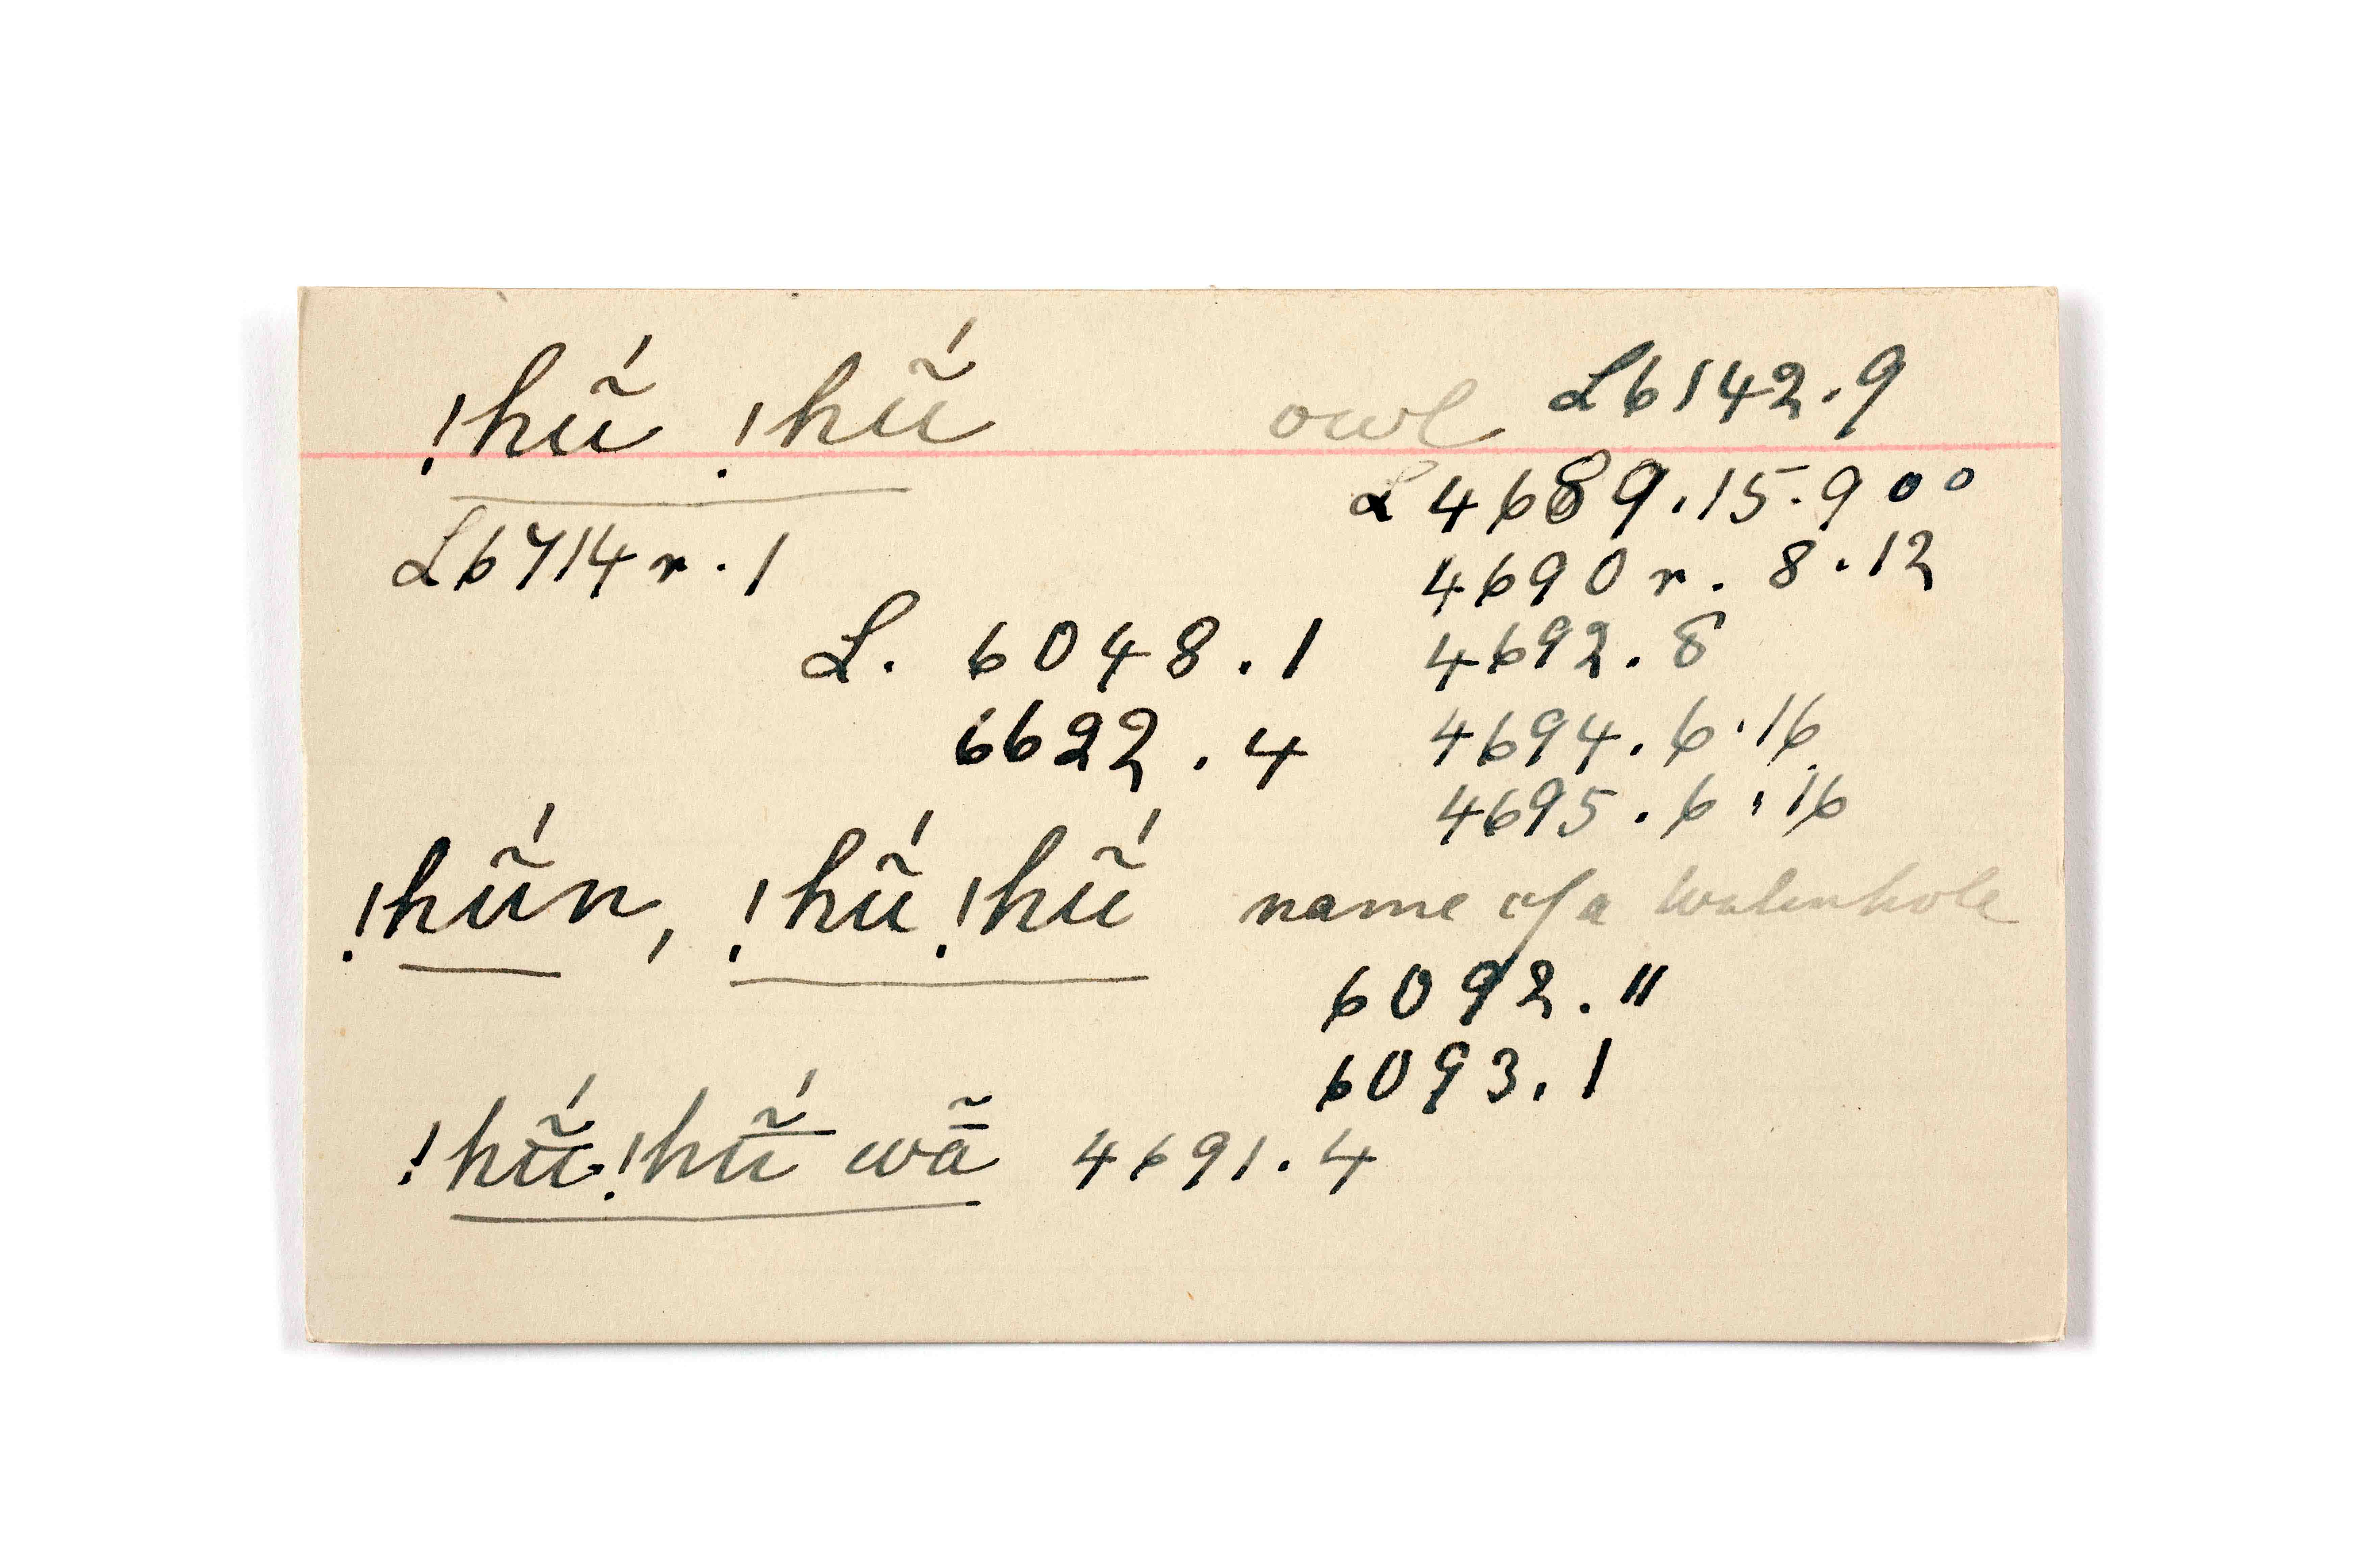 !hú̃ !hú̃ owl L6142.9
L 4689.15.9 o o
L6714 r. 1
4690 r. 8.12
L. 6048.1 4692.8
6622.4 4694.6.16
4695.6.16
!hú̃n, !hú̃!hú̃ name of a Waterhole
6092."
6093.1
!hṹ̄!hṹ̄ wā̃ 4691.4